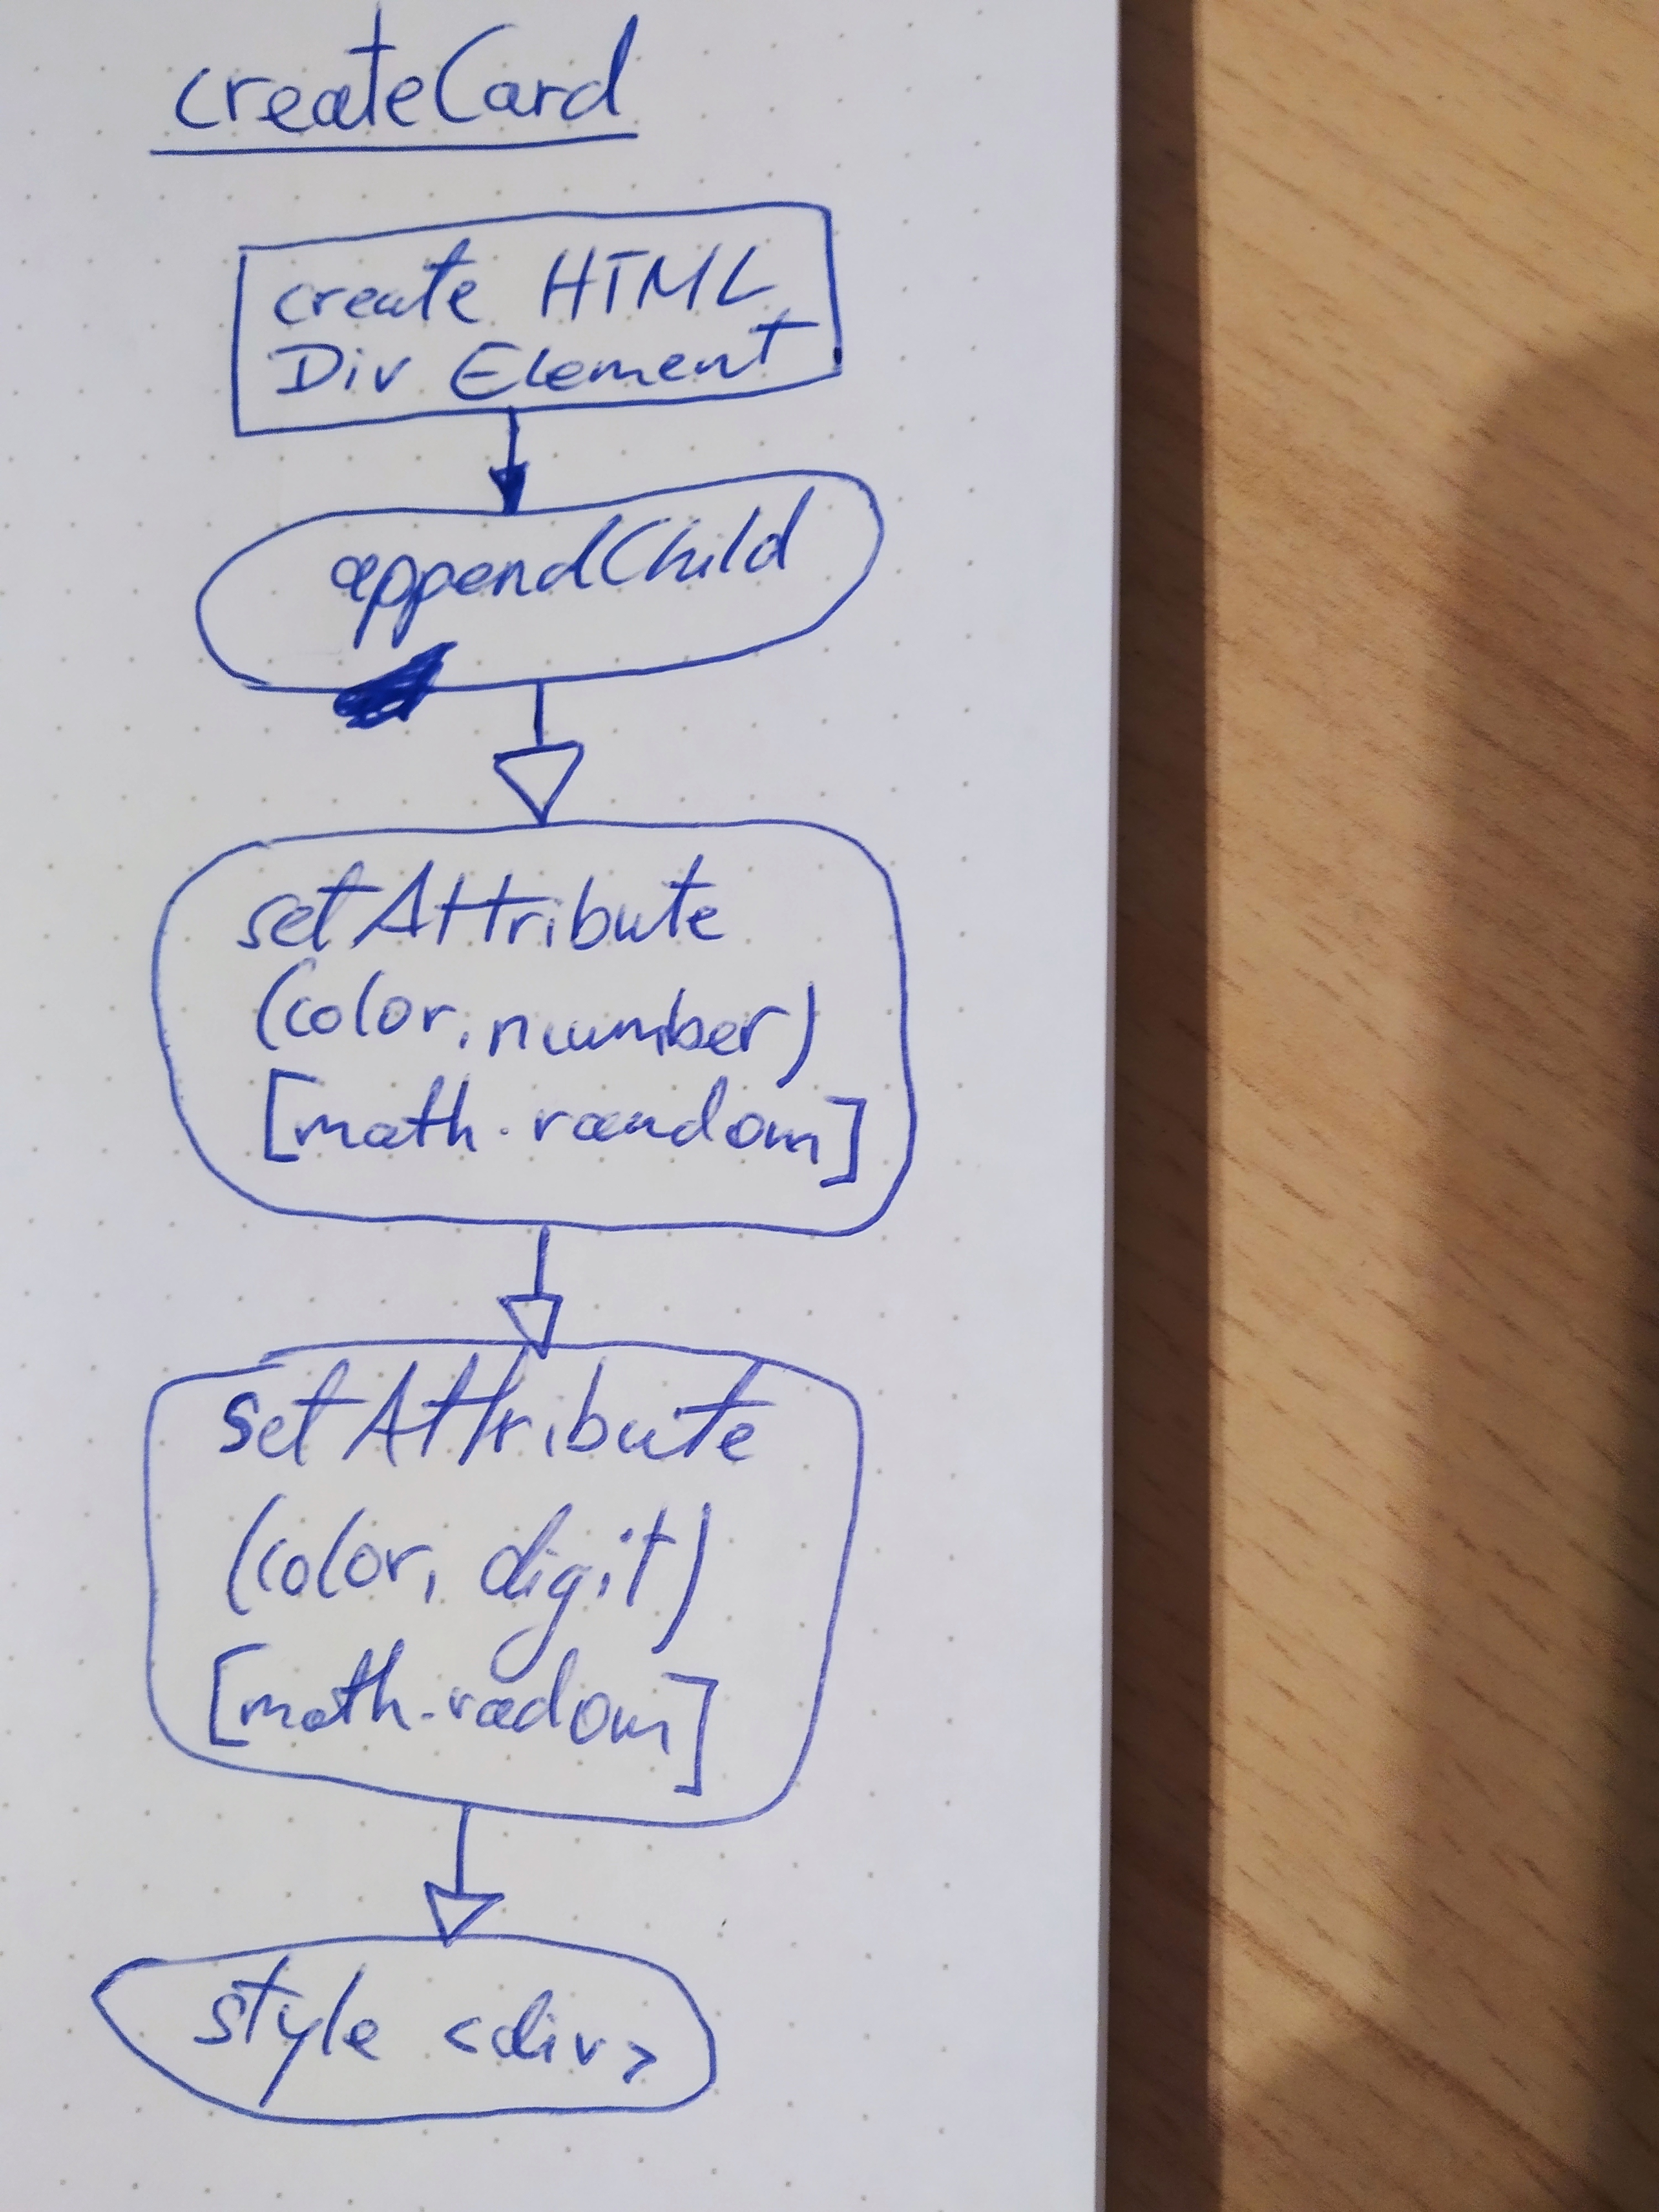 createCard
create HTML
Div Element
appendChild
setAttribute
(color, number)
[math.random]
setAttribute
(color, digit)
[math.radom]
style <div>